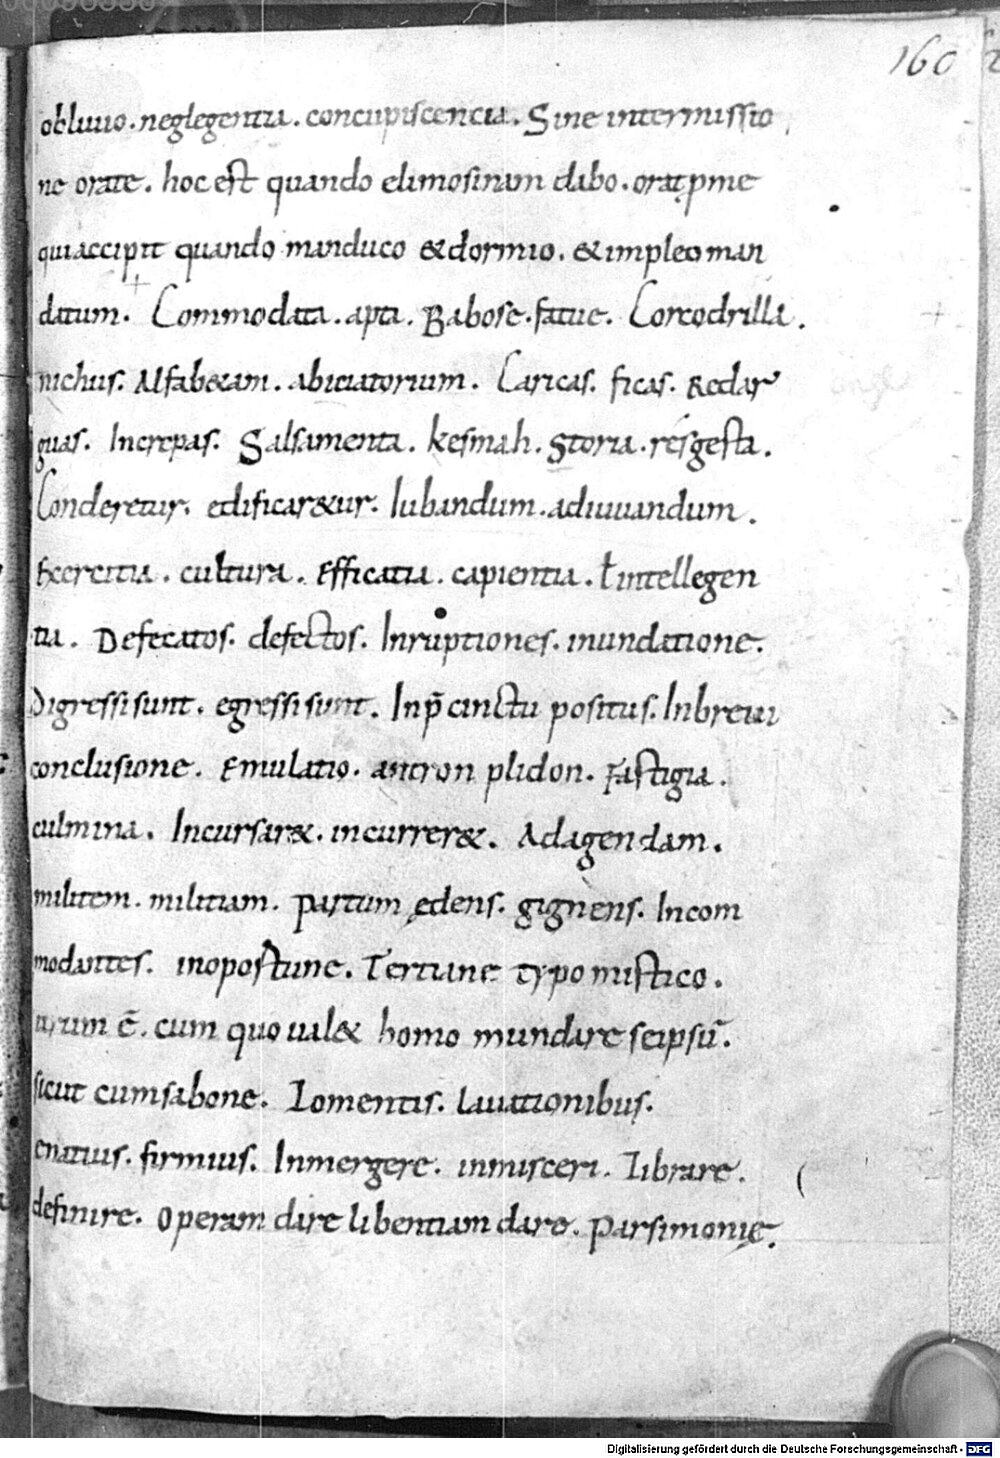 160
obliuio. neglegentia. concupiscencia. Sine intermissio
ne orate. hoc est quando elimosinam dabo. orat pme
qui accipit quando manduco & dormio. & impleo man
datum. Commodata. apta. Babose. fatue. Corcodrilla.
nichus. Alfab&am. abiciatorium. Caricas. ficas. Redar
guas. Increpas. Salsamenta. kesmah. Storia. res gesta.
Conderetur. edificar&ur. Iubandum. adiuuandum.
Exercitia. cultura. Efficatia. capientia. ł intellegen
tia. Defecatos. defectos. Inruptiones. inundatione.
Digressi sunt. egressi sunt. In p̄cinctu positus. In breui
conclusione. Emulatio. antron plidon. Fastigia.
culmina. Incursar&. incurrer&. Adagendam.
militem. militiam. Partum ędens. gignens. Incom
modantes. inoportune. Tertiane typo mistico.
ē. cum quo ual& homo mundare seipsū.
sicut cum sabone. Lomentis. Lauationibus.
enatius. firmius. Inmergere. inmisceri. Librare.
definire. Operam dare libentiam dare. Parsimonię.
Digitalisierung gefördert durch die Deutsche Forschungsgemeinschaft - DFG